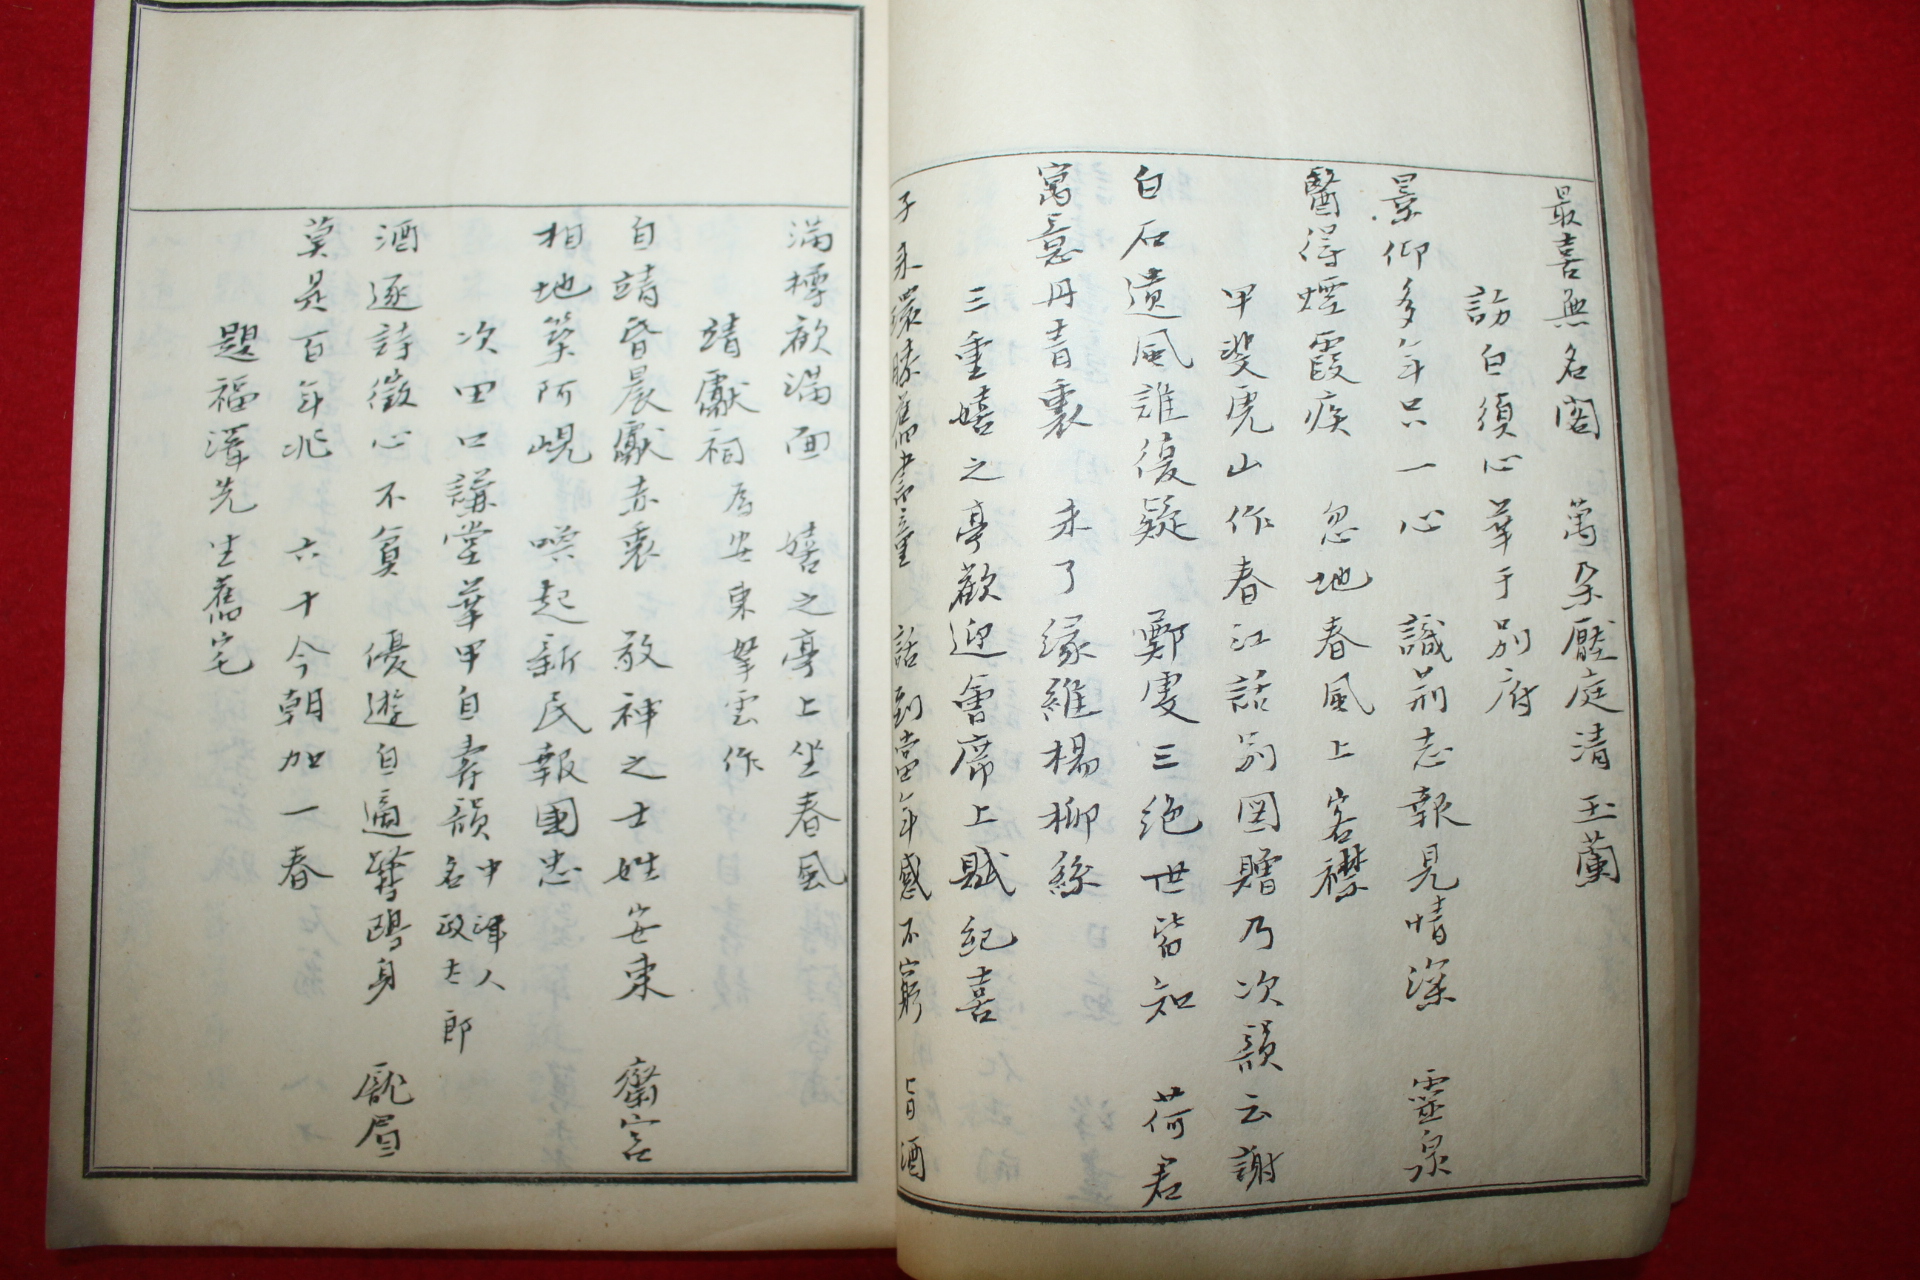 最喜無名閣 萬朶壓庭清玉蘭
訪白須心華于別府
景仰多年只一心 識荊志報見情深 靈泉
醫得煙霞疾 忽地春風上客襟
甲斐虎山作春江話別図贈乃次韻云謝
白石遺風誰復疑 鄭虔三絶世皆知 荷君
寓意丹青裏 未了緣維楊柳絲
三重嬉之亭歡迎會席上賦紀喜
子来環膝舊書童 話到當年感不窮 旨酒
満樽歓満面 嬉之亭上坐春風
靖献祠 為安東撃雲作
自靖昏晨献赤衷 敬神之士姓安東 齋宮
相地築阿峴 喚起新民報國忠
次田口講堂華甲自壽韻 中津人名政士郎
酒逐詩徵心不負 優遊自適鷺鷗身 厖眉
莫是百年兆 六十今朝加一春
題福澤先生舊宅